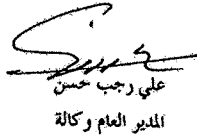 علي رجب حسن
المدير العام وكالة